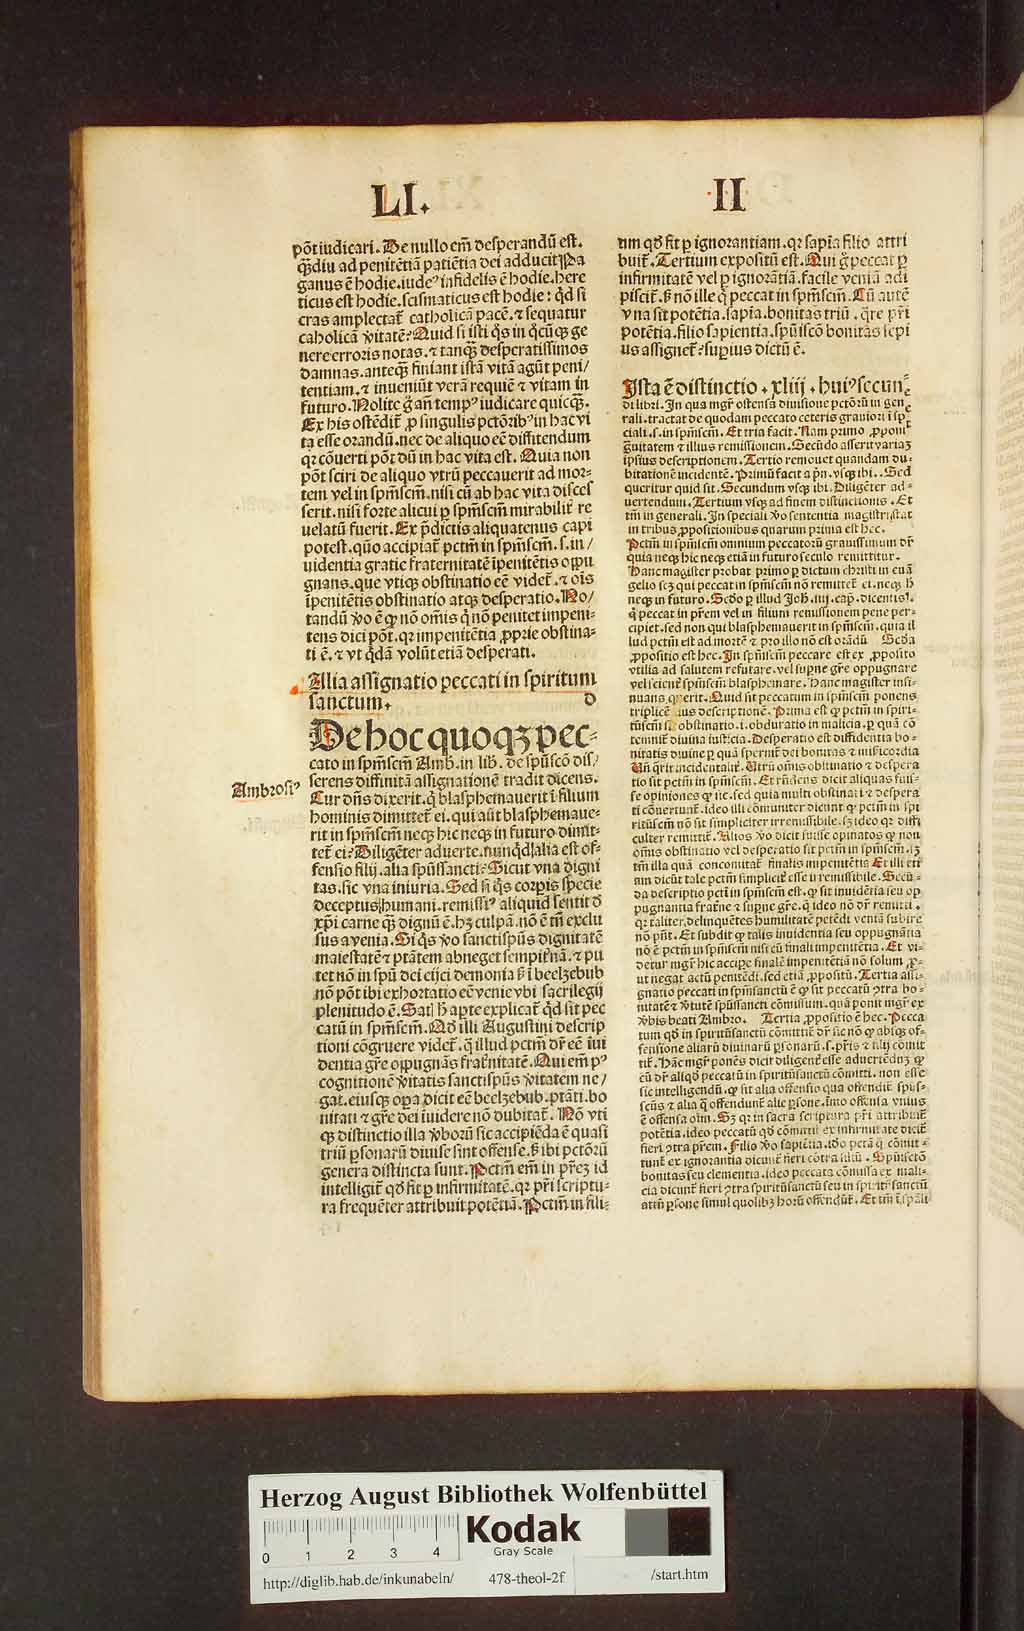 LI.
II
põt iudicari. De nullo em̃ desperandũ est.
q̃ȝdiu ad penitẽtiã patiẽtia dei adducit Pa
ganus ẽ hodie. iudeꝰ infidelis ẽ hodie. here
ticus est hodie. scismaticus est hodie: qd̃ si
cras amplectat̃ catholicã pacẽ. ⁊ sequatur
catholicã ṽitatẽ? Quid si isti q̃s in q̃cũqȝ ge
nere erroris notas. ⁊ tanqȝ desperatissimos
damnas. anteqȝ finiant istã vitã agũt peni/
tentiam. ⁊ inueniũt verã requiẽ ⁊ vitam in
futuro. Nolite g̃ añ tempꝰ iudicare quicqȝ.
Ex his ostẽdit̃ ꝓ singulis pctõribꝰ in hac vi
ta esse orandũ. nec de aliquo eẽ diffitendum
qꝛ cõuerti põt dũ in hac vita est. Quia non
põt sciri de aliquo vtrũ peccauerit ad mor-
tem vel in spm̃scm̃. nisi cũ ab hac vita disces
serit. nisi forte alicui ꝑ spm̃scm̃ mirabilit̃ re
uelatũ fuerit. Ex p̃dictis aliquatenus capi
potest. quõ accipiat̃ pctm̃ in spm̃scm̃. s. in/
uidentia gratie fraternitatẽ ĩpenitẽtis oppu
gnans. que vtiqȝ obstinatio eẽ videt̃. ⁊ oĩs
ĩpenitẽtis obstinatio atqȝ desperatio. No/
tandũ ṽo ẽ ꝙ nõ om̃is q̃ nõ penitet impeni-
tens dici põt. qꝛ impenitẽtia ꝓprie obstina-
ti ẽ. ⁊ vt q̃dã volũt etiã desperati.
Alia assignatio peccati in spiritum
sanctum. D
De hoc quoqȝ pec-
cato in spm̃scm̃ Amb. in lib. de spũscõ dis/
serens diffinitã assignationẽ tradit dicens.
Ambrosiꝰ
Cur dñs dixerit. q̃ blasphemauerit ĩ filium
hominis dimittet̃ ei. qui aũt blasphemaue-
rit in spm̃scm̃ neqȝ hic neqȝ in futuro dimit-
tet̃ ei? Diligẽter aduerte. nunqd̃ alia est of-
fensio filij. alia spũssancti? Sicut vna digni
tas. sic vna iniuria. Sed si q̃s corpis specie
deceptus humani. remissiꝰ aliquid sentit d̃
xp̃i carne qȝ dignũ ẽ. hȝ culpã. nõ ẽ tm̃ exclu
sus a venia. Si q̃s ṽo sanctispũs dignitatẽ
maiestatẽ ⁊ ptãtem abneget sempit̃nã. ⁊ pu
tet nõ in spũ dei eijci demonia s̃ ĩ beelzebub
nõ põt ibi exhortatio eẽ venie vbi sacrilegij
plenitudo ẽ. Satj h̃ aperte explicat̃ qd̃ sit pec
catũ in spm̃scm̃. Qd̃ illi Augustini descrip
tioni cõgruere videt̃. q̃ illud pctm̃ dr̃ eẽ ĩui
dentia gr̃e oppugnãs frat̃nitatẽ. Qui em̃ pꝰ
cognitionẽ ṽitatis sanctispũs ṽitatem ne/
gat. eiusqȝ opa dicit eẽ beelzebub. ptãti. bo
nitati ⁊ gr̃e dei ĩuidere nõ dubitat̃. Nõ vti
qȝ distinctio illa ṽborũ sic accipiẽda ẽ quasi
triũ ꝑsonarũ diuise sint offense. s̃ ibi pctõrũ
genera distincta sunt. Pctm̃ em̃ in pr̃eȝ id
intelligit̃ qd̃ fit ꝑ infirmitatẽ. qꝛ pr̃i scriptu-
ra frequẽter attribuit potẽtiã. Pctm̃ in fili-
um qd̃ fit ꝑ ignorantiam. qꝛ sapĩa filio attri
buit̃. Tertium expositũ est. Qui g̃ peccat ꝑ
infirmitatẽ vel ꝑ ignorãtiã. facile veniã adi
piscit̃. s̃ nõ ille q̃ peccat in spm̃scm̃. Cũ autẽ
vna sit potẽtia. sapĩa. bonitas triũ. q̃re pr̃i
potẽtia. filio sapientia. spũiscõ bonitas sepi
us assignet̃? supius dictũ ẽ.
Ista ẽ distinctio . xliij . huiꝰ secun-
di libri. In qua mgr̃ ostensa diuisione pctõrũ in gen
rali. tractat de quodam peccato ceteris grauiori ĩ sp
ciali. s. in spm̃scm̃. Et tria facit. Nam primo ꝓponi
grauitatem ⁊ illius remissionem. Secũdo asserit variaȝ
ipsius descriptionem. Tertio remouet quandam du-
bitationẽ incidentẽ. Primũ facit a pñ. vsqȝ ibi. Sed
queritur quid sit. Secundum vsqȝ ibi. Diligẽter ad-
uertendum. Tertium vsqȝ ad finem distinctionis. Et
tm̃ in generali. In speciali ṽo sententia magistri stat
in tribus ꝓpositionibus quarum prima est hec.
Pctm̃ in spm̃scm̃ omnium peccatorũ grauissimum dr̃
quia neqȝ hic neqȝ etiã in futuro seculo remittitur.
Hanc magister probat primo ꝑ dictum christi in euã
gelio scȝ qui peccat in spm̃scm̃ nõ remittet̃ ei. neqȝ h̃
neqȝ in futuro. Scd̃o ꝑ illud Joh̃. iiij. cap. dicentis.
q̃ peccat in pr̃em vel in filium remissionem pene per-
cipiet. sed non qui blasphemauerit in spm̃scm̃. quia il
lud pctm̃ est ad mortẽ ⁊ pro illo nõ est orãdũ Scd̃a
ꝓpositio est hec. In spm̃scm̃ peccare est ex ꝓposito
vtilia ad salutem refutare. vel supne gr̃e oppugnare
vel scient̃ spm̃scm̃ blasphemare. Hanc magister insi-
nuans querit. Quid sit peccatum in spm̃scm̃ ponens
triplicẽ eius descriptionẽ. Prima est ꝙ pctm̃ in spiri-
tũscm̃ ẽ obstinatio. i. obduratio in malicia. ꝑ quã cõ
temnit̃ diuina iusticia. Desperatio est diffidentia bo-
nitatis diuine ꝑ quã spernit̃ dei bonitas ⁊ misericordia
Vñ q̃rit incidentalit̃. Vtrũ om̃is obstinatio ⁊ despera
tio sit pctm̃ in spm̃scm̃. Et rñdens dicit aliquas fuis-
se opiniones ꝙ sic. sed quia multi obstinati ⁊ despera
ti cõuertunt̃. ideo illi cõmuniter dicunt ꝙ pctm̃ in spi
ritũscm̃ nõ sit simpliciter irremissibile. sȝ ideo qꝛ diffi
culter remittit̃. Alios ṽo dicit fuisse opinatos ꝙ non
om̃is obstinatio vel desperatio sit pctm̃ in spm̃scm̃. sȝ
tm̃ illa quã concomitat̃ finalis impenitẽtia Et illi eti
am dicũt tale pctm̃ simplicit̃ esse irremissibile. Secũ-
da descriptio pctĩ in spm̃scm̃ est. ꝙ sit inuidẽtia seu op
pugnantia frat̃ne ⁊ supne gr̃e. q̃ ideo nõ dr̃ remitti.
qꝛ taliter delinquẽtes humilitatẽ petẽdi veniã subire
nõ pñt. Et subdit ꝙ talis inuidentia seu oppugnãtia
nõ ẽ pctm̃ in spm̃scm̃ nisi cũ finali impenitẽtia. Et vi-
detur mgr̃ hic accipe finalẽ impenitẽtiã nõ solum ꝓ-
ut negat actũ penitẽdi. sed etiã ꝓpositũ. Tertia assi-
gnatio peccati in spm̃sanctũ ẽ ꝙ sit peccatũ ↄtra bo-
nitatẽ ⁊ ṽtutẽ spũssancti cõmissum. quã ponit mgr̃ ex
ṽbis beati Ambro. Tertia ꝓpositio ẽ hec. Pecca
tum qd̃ in spiritũsanctũ cõmittit̃ dr̃ sic nõ ꝙ absqȝ of-
fensione aliarũ diuinarũ ꝑsonarũ. s. pr̃is ⁊ filij cõmit
tit̃. Hãc mgr̃ ponẽs dicit diligent̃ esse aduertẽdũ ꝙ
cũ dr̃ aliqd̃ peccatũ in spiritũsanctũ cõmitti. non esse
sic intelligendũ. ꝙ sit alia offensio qua offendit̃ spũs-
scũs ⁊ alia q̃ offendunt̃ alie ꝑsone. ĩmo offensa vnius
ẽ offensa oĩm. Sȝ qꝛ in sacra scriptura pr̃i attribuit̃
potẽtia. ideo peccatũ qd̃ cõmittit̃ ex infirmitate dicit̃
fieri ↄtra pr̃em. Filio ṽo sapiẽtia. ido pctã q̃ cõmit-
tunt̃ ex ignorantia dicunt̃ fieri cõtra filiũ. Spũisctõ
bonitas seu clementia. ideo peccata cõmissa ex mali-
cia dicunt̃ fieri ↄtra spiritũsanctũ seu in spiritũsanctũ
attñ ꝑsone simul quolibȝ horũ offendũt̃. Et tm̃ ĩ spãli
Herzog August Bibliothek Wolfenbüttel
0 1 2 3 4
Kodak
Gray Scale
http://diglib.hab.de/inkunabeln/ 478-theol-2f /start.htm